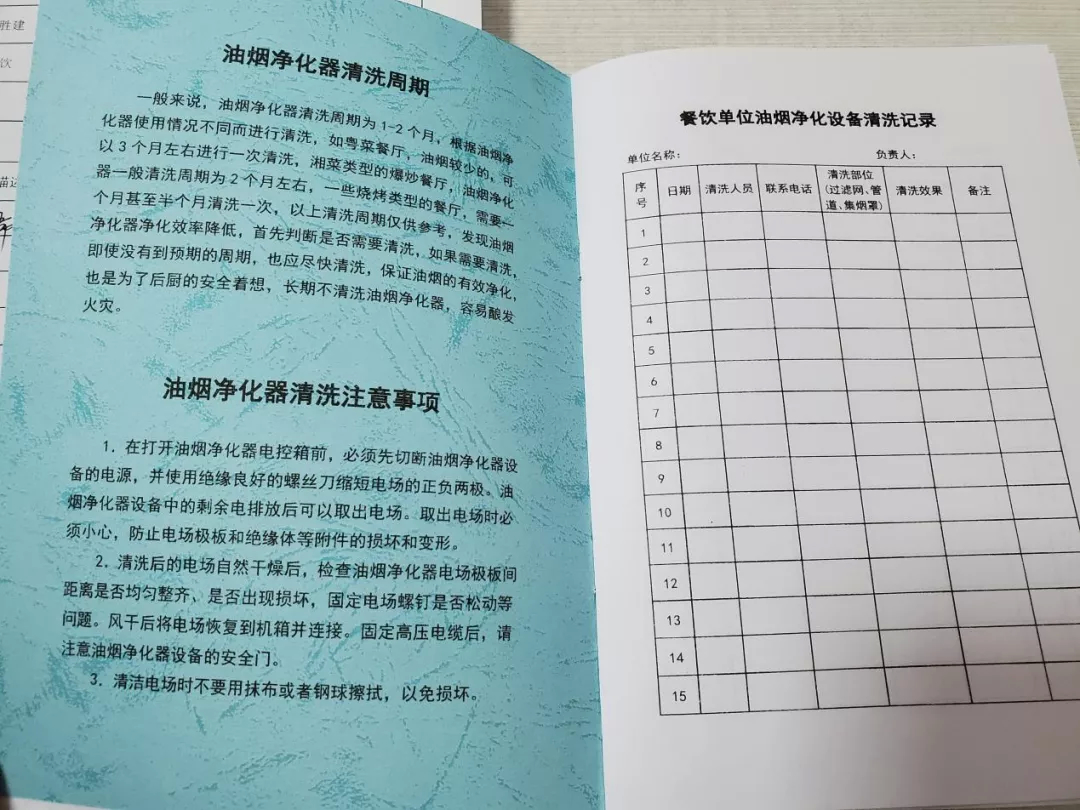 胜建
饮
油烟净化器清洗周期
一般来说，油烟净化器清洗周期为1-2个月，根据油烟净
化器使用情况不同而进行清洗，如粤菜餐厅，油烟较少的，可
以3个月左右进行一次清洗，湘菜类型的爆炒餐厅，油烟净化
器一般清洗周期为2个月左右，一些烧烤类型的餐厅，需要一
个月甚至半个月清洗一次，以上清洗周期仅供参考，发现油烟
净化器净化效率降低，首先判断是否需要清洗，如果需要清洗，
即使没有到预期的周期，也应尽快清洗，保证油烟的有效净化，
也是为了后厨的安全着想，长期不清洗油烟净化器，容易酿发
火灾。
油烟净化器清洗注意事项
1．在打开油烟净化器电控箱前，必须先切断油烟净化器设
备的电源，并使用绝缘良好的螺丝刀缩短电场的正负两极。油
烟净化器设备中的剩余电排放后可以取出电场。取出电场时必
须小心，防止电场极板和绝缘体等附件的损坏和变形。
2．清洗后的电场自然干燥后，检查油烟净化器电场极板间
距离是否均匀整齐、是否出现损坏，固定电场螺钉是否松动等
问题。风干后将电场恢复到机箱并连接。固定高压电缆后，请
注意油烟净化器设备的安全门。
3．清洁电场时不要用抹布或者钢球擦拭，以免损坏。
餐饮单位油烟净化设备清洗记录
单位名称： 负责人：
序号 日期 清洗人员 联系电话 清洗部位(过滤网、管道、集烟罩) 清洗效果 备注
1
2
3
4
5
6
7
8
9
10
11
12
13
14
15